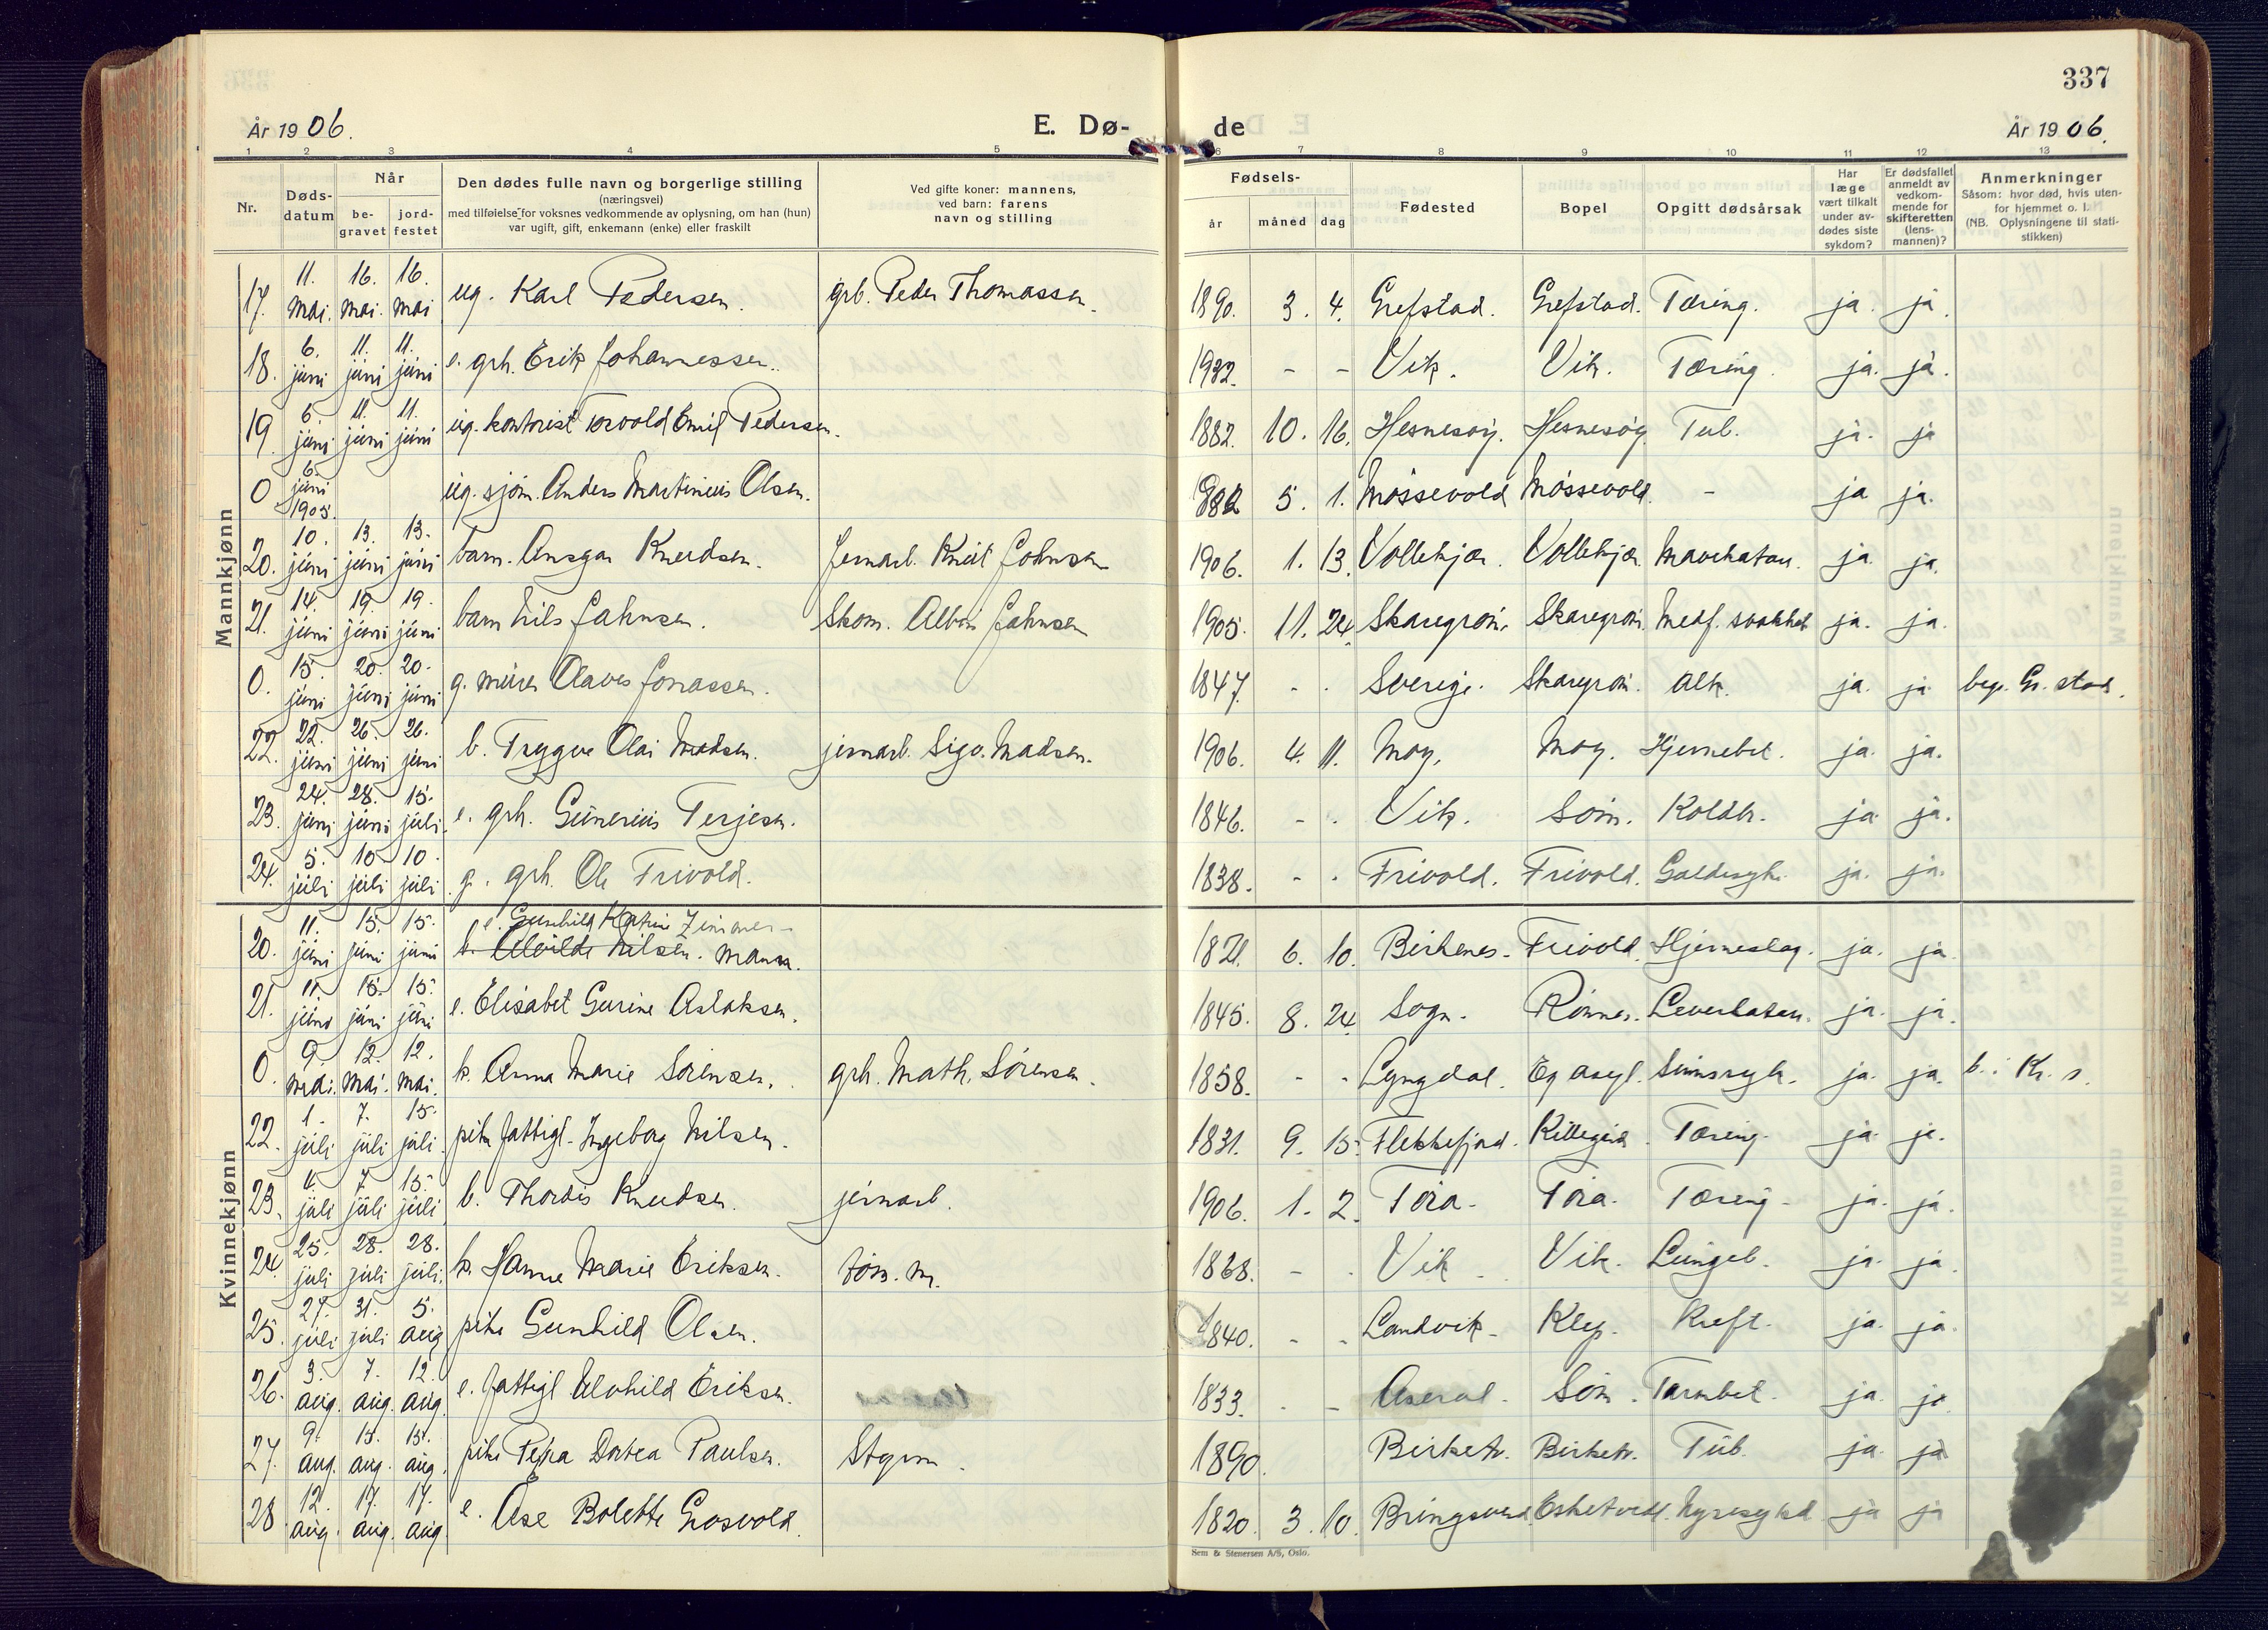 337
År 1906.
E. Dø-
de
År 1906.
1 2 3 4 5 6 7 8 9 10 11 12 13
Nr.
Døds-
datum
Når
be-
gravet
jord-
festet
Den dødes fulle navn og borgerlige stilling
(næringsvei)
med tilføielse for voksnes vedkommende av oplysning, om han (hun)
var ugift, gift, enkemann (enke) eller fraskilt
Ved gifte koner: mannens,
ved barn: farens
navn og stilling
Fødsels-
år måned dag
Fødested
Bopel
Opgitt dødsårsak
Har
læge
vært tilkalt
under av-
dødes siste
sykdom?
Er dødsfallet
anmeldt av
vedkom-
mende for
skifteretten
(lens-
mannen)?
Anmerkninger
Såsom: hvor død, hvis uten-
for hjemmet o. l.
(NB. Oplysningene til stati-
stikken)
Mannkjønn
17. 11. mai. 16. mai. 16. mai ug. Karl Pedersen. grb. Peder Thomassen. 1890. 3. 4. Grefstad. Grefstad. Tæring. ja. ja.
18. 6. juni 11. juni 11. juni e. grh. Erik Johannessen. 1932. - - Vik. Vik. Tæring. ja. ja.
19 6. juni 11. juni 11. juni ug. kontorist Torvold Emil Pedersen. 1882. 10. 16. Hesnesøy. Hesnesøy Tub. ja. ja
0 6. juni 1905. ug. sjøm. Anders Martinius Olsen. 5. 1. Møssevold Møssevold. - ja ja.
20. 10. juni 13. juni 13. juni barn. Ansgar Knudsen. Jernarb. Knut Johnsen 1906. 1. 13. Vollekjær. Vollekjær. Mavekatarr. ja. ja.
21. 14. juni 19. juni 19. juni barn Nils Jahnsen. Skom. Albin Jahnsen 1905. 11. 24. Skaregrøn. Skaregrøn. Medf. svakhet ja. ja.
0. 15. juni 20. juni 20. juni g. murer Olaves Jonassen. 1847. - . Sverige. Skaregrøn. Alk. ja. ja begr. Gr. stad.
22. 22. juni 26. juni 26. juni b. Trygve Olai Madsen. jernarb. Sigv. Madsen. 1906. 4. 11. Moy. Moy. Hjernebet. ja. ja.
23. 24. juni 28. juni 15. juli e. grh. Gunerius Terjesen. 1846. - . Vik. Søm. Koldbr. ja ja.
24. 5. juli 10 juli 10. juli g. grh. Ole Frivold. 1838. - . Frivold. Frivold. Galdesyk. ja. ja.
Kvinnekjønn
e. Gunhild Katrine Zimmer-
20. 11. juni 15. juni 15. juni Alvilde Nilsen. mann. 1821. 6. 10. Birkenes. Frivold. Hjerneslag. ja. ja.
21. 11 juni 15. juni 15. juni e. Elisabet Gurine Aslaksen. 1845. 8. 24. Sogn. Rønnes. Leverkatarr. ja. ja.
0. 9. mai. 12. mai. 12. mai. k. Anna Marie Sørensen. grh. Math. Sørensen. 1858. - - Lyngdal. Eg asyl. Sinnssyk. ja. ja. b. i Kr. s.
22. 1. juli 7. juli 15. juli pike fattigl. Ingeborg Nilsen. 1831. 9. 15. Flekkefjord. Killegård. Tæring. ja. ja.
23. 4. juli 7. juli 15. juli b. Thordis Knudsen. jernarb. 1906. 1. 2. Tøra. Tøra. Tæring. ja. ja.
24. 25. juli 28. juli 28. juli. k. Hanne Marie Eriksen. tøm. m. 1868. - . Vik. Vik. Lungeb. ja. ja.
25. 27. juli 31. juli 5. aug pike Gunhild Olsen. 1840. - - Landvik. Klep. Kreft. ja. ja.
26. 3. aug. 7. aug. 12. aug. e. fattigl Alvhild Eriksen. 1833. . - Aseral. Søm. Tarmbet. ja. ja
27. 9. aug. 15. aug. 15. aug. pike Petra Dortea Paulsen. Styrm. 1890. Birketv. Birketv. Tub. ja. ja
28. 12. aug. 17. aug. 17. aug. e. Åse Bolette Grosvold. 1820. 3. 10. Bringsverd. Esketvedt. Nyresykd ja ja
Sem & Stenersen A/S, Oslo.